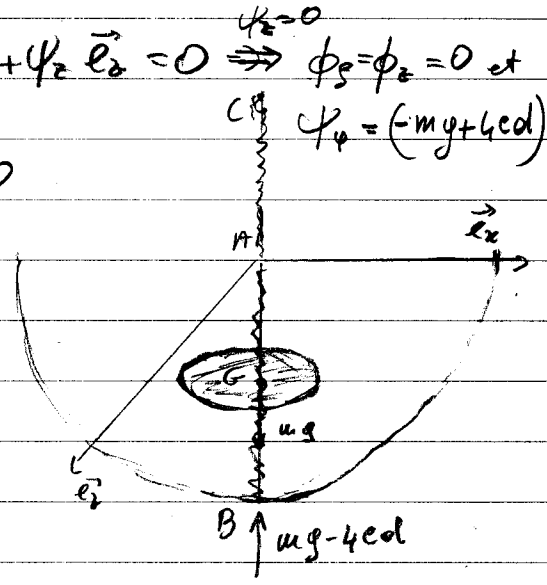 ψz = 0
+ψz e⃗z = 0 ⇒ ϕρ = ϕz = 0 et
C
ψφ = (-mg+4cd)
A
e⃗x
G
mg
e⃗z
B
mg-4cd